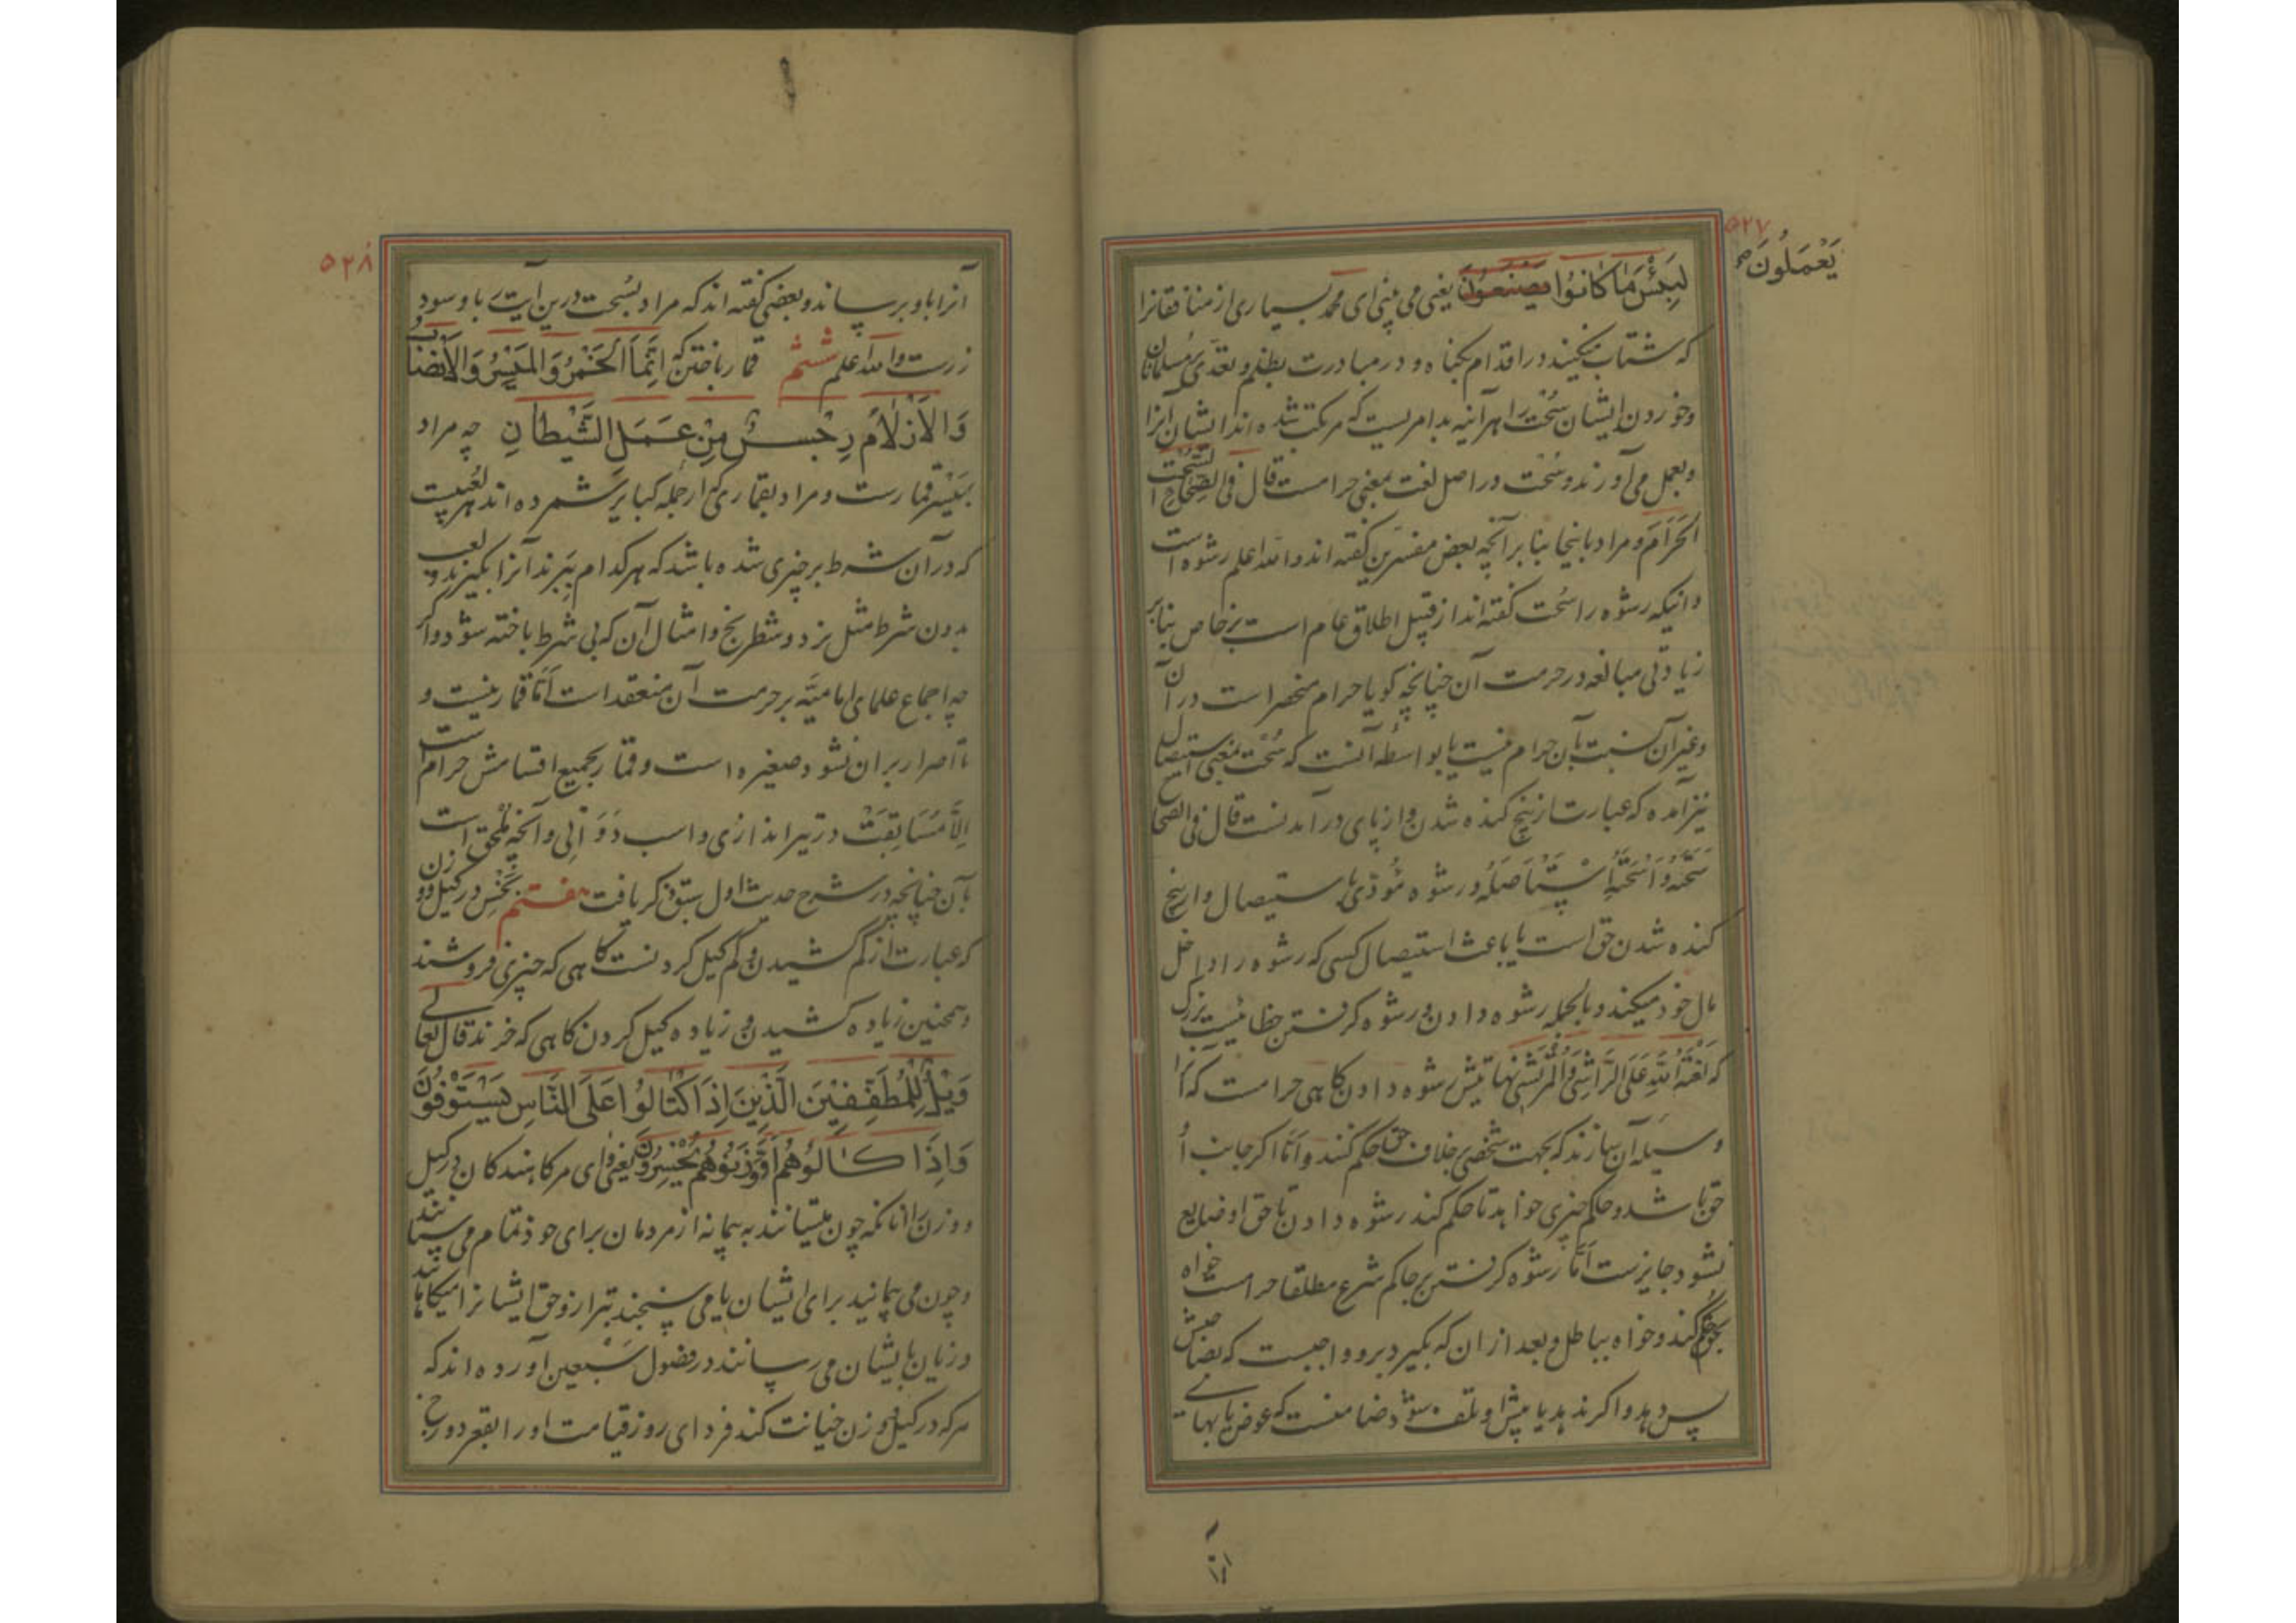 ۵۲۷
یَعْمَلُونَ صح
لَبِئْسَ مَا كَانُوا یَصْنَعُونَ یعنی می بینی ای محمد بسیاری از منافقانرا
که شتاب میکنند در اقدام بگناه و در مبادرت بظلم و تعدی بر مسلمانان
وخوردن ایشان سُحْت را هرآینه بدامریست که مرتکب شده اند ایشان آنرا
وبعمل می آورند وسُحْت در اصل لغت بمعنی حرامست قال فی الصِّحاح السُّحْت
الحَرَام ومراد باینجا بنابر آنچه بعض مفسّرین گفته اند والله اعلم رشوه است
واینکه رشوه را سُحت گفته اند از قبیل اطلاق عام است بر خاص بنا بر
زیادتی مبالغه در حرمت آن چنانچه گویا حرام منحصر است در آن
وغیر آن نسبت بآن حرام نیست یا بواسطه آنست که سُحْت بمعنی استیصال
نیز آمده که عبارت از بیخ کنده شدن واز پای در آمدنست قال فی الصحاح
سَحَتَهُ وَاَسْحَتَهُ اِسْتَأصَلَهُ ورشوه مُؤدّی باستیصال واز بیخ
کنده شدن حق است یا باعث استیصال کسی که رشوه را داخل
مال خود میکند وبالجمله رشوه دادن ورشوه گرفتن خطائیست بزرگ
که لَعْنَةُ اللهِ عَلَى الرَّاشِی وَالْمُرْتَشِی نهایتش رشوه دادن گاهی حرامست که آنرا
وسیله آن سازند که بجهت شخصی بخلاف حق حکم کنند واَمّا اگر جانب اُ
حق باشد وحاکم چیزی خواهد تا حکم کند رشوه دادن تا حق او ضایع
نشود جایزست اَمّا رشوه گرفتن بر حاکم شرع مطلقا حرامست خواه
بحق حکم کند وخواه بباطل وبعد از ان که بگیرد برو واجبست که بصاحبش
پس دهد واگر ندهد یا پیش او تلف شود ضامنست که عوض یا بهای
آنرا
۵۲۸
آنرا باو برساند وبعضی گفته اند که مراد بسُحت درین آیت ربا وسود
زرست والله اعلم ششم قمار باختن که اِنَّمَا الْخَمْرُ وَالْمَیْسِرُ وَالْاَنْصَابُ
وَالْاَزْلَامُ رِجْسٌ مِنْ عَمَلِ الشَّیْطَانِ چه مراد
بمَیْسِر قمارست ومراد بقماری که از جمله کبایر شمرده اند هر لعبیست
که در آن شرط بر چیزی شده باشد که هرکدام بِبَرند آنرا بگیرند ولعب
بدون شرط مثل نرد وشطرنج وامثال آن که بی شرط باخته شود واگر
چه اجماع علمای امامیّه بر حرمت آن منعقد است اَمّا قمار نیست و
تا اصرار بران نشود صغیره است وقمار بجمیع اقسامش حرام است
اِلّا مُسَابَقَتْ در تیراندازی واسب دَوَانِی وآنچه مُلحق است
بآن چنانچه در شرح حدیث اول سبق ذکر یافت هفتم بَخْس در کیل ووزن
که عبارت از کم کشیدن وکم کیل کردنست گاهی که چیزی فروشند
وهمچنین زیاده کشیدن وزیاده کیل کردن گاهی که خرند قال تعالی
وَیْلٌ لِلْمُطَفِّفِینَ الَّذِینَ اِذَا اكْتَالُوا عَلَى النَّاسِ یَسْتَوْفُونَ
وَاِذَا كَالُوهُمْ اَوْ وَزَنُوهُمْ یُخْسِرُونَ یعنی وای مر کاهندگان در کیل
ووزن را آنانکه چون میستانند به پیمانه از مردمان برای خود تمام می ستانند
وچون می پیمایند برای ایشان یا می سنجند بترازو حق ایشانرا میکاهانند
وزیان بایشان می رسانند در فصول سَبْعِین آورده اند که
هرکه در کیل ووزن خیانت کند فردای روز قیامت او را بقعر دوزخ